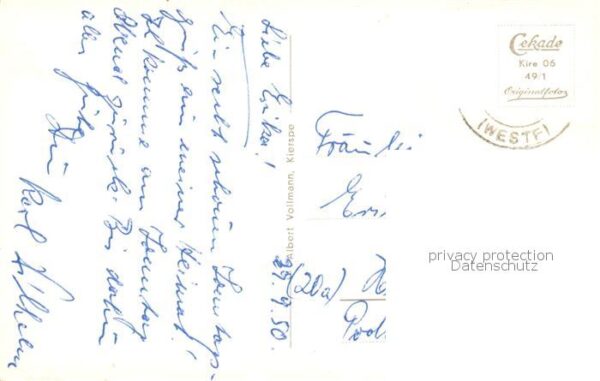 29.9.50.
Liebe Erika!
Ein recht schönen Sonntags-
gruß aus meiner Heimat!
Ich komme am Sonntag
Abend zurück. Bis dahin
alles Gute
Dein Karl Wilhelm
Albert Vollmann, Kierspe
Cekade
Kire 06
49/1
Originalfoto
(WESTF)
Fräulei
Eri
(20a) H
Pod
privacy protection
Datenschutz